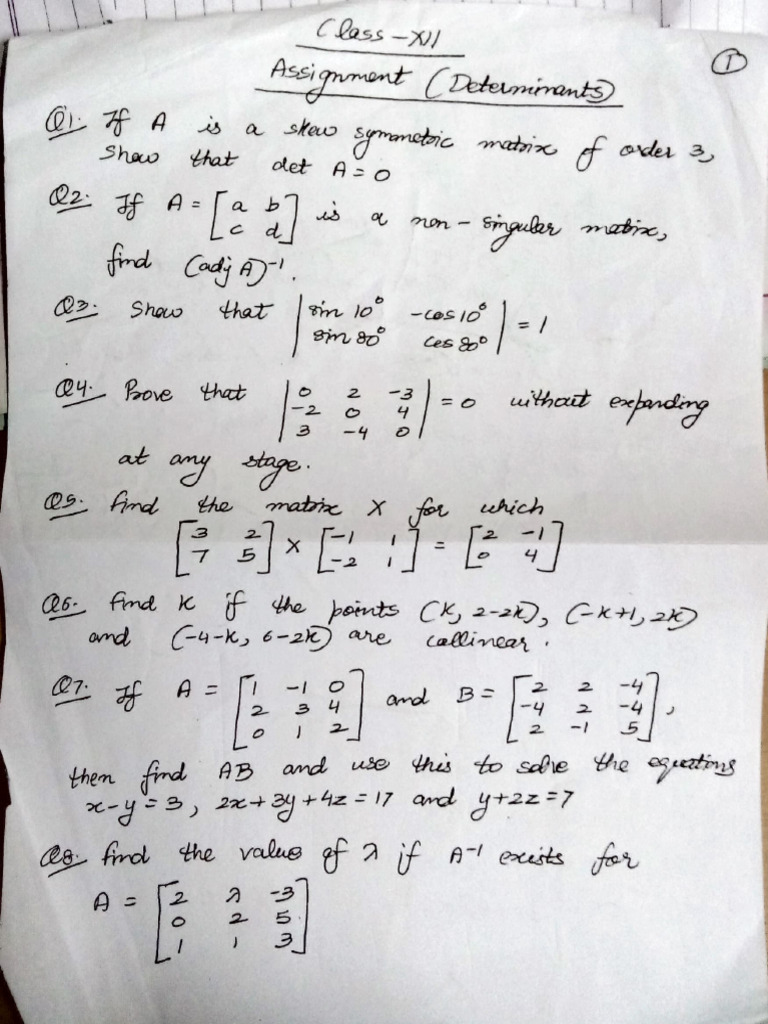 Class - XII
Assignment (Determinants)
①
Q1. If A is a skew symmetric matrix of order 3,
show that det A = 0
Q2. If A = [a b; c d] is a non-singular matrix,
find (adj A)⁻¹.
Q3. Show that |sin 10° -cos 10°; sin 80° cos 80°| = 1
Q4. Prove that |0 2 -3; -2 0 4; 3 -4 0| = 0 without expanding
at any stage.
Q5. Find the matrix X for which
[3 2; 7 5] X [-1 1; -2 1] = [2 -1; 0 4]
Q6. Find K if the points (K, 2-2K), (-K+1, 2K)
and (-4-K, 6-2K) are collinear.
Q7. If A = [1 -1 0; 2 3 4; 0 1 2] and B = [2 2 -4; -4 2 -4; 2 -1 5],
then find AB and use this to solve the equations
x-y=3, 2x+3y+4z=17 and y+2z=7
Q8. Find the value of λ if A⁻¹ exists for
A = [2 λ -3; 0 2 5; 1 1 3]